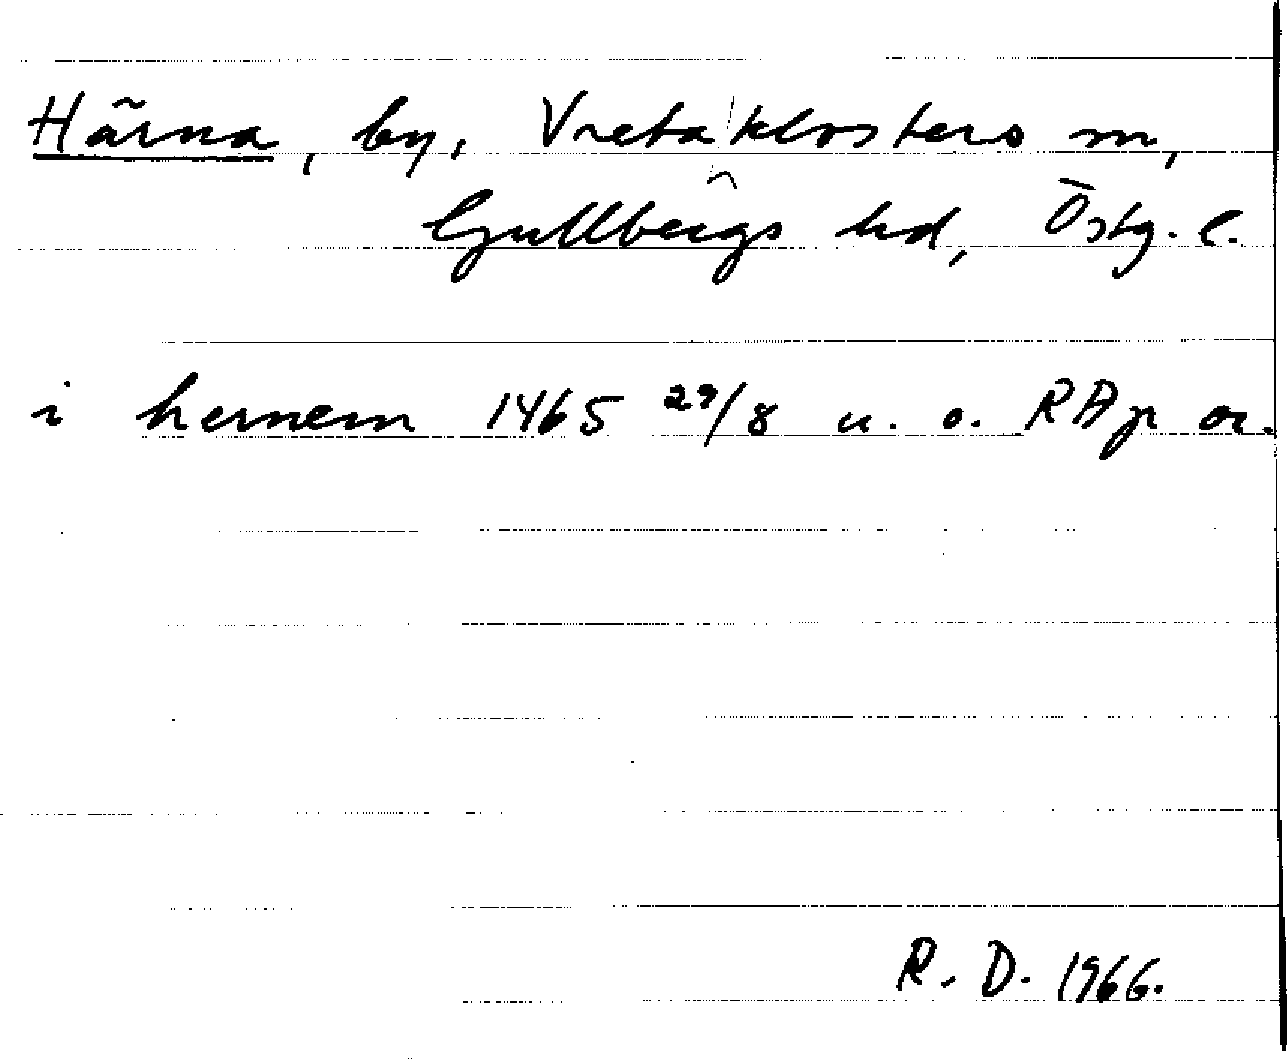 Härna, by, Vreta klosters sn,
Gullbergs hd, Östg. l.
i hernem 1465 29/8 u. o. RAp or.
R. D. 1966.